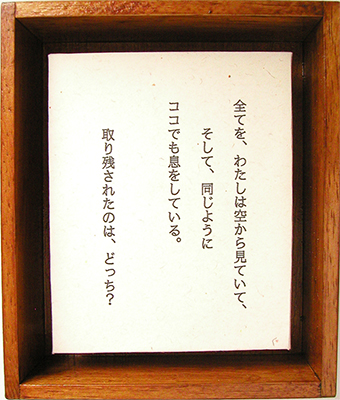 全てを、わたしは空から見ていて、
そして、同じように
ココでも息をしている。
取り残されたのは、どっち?